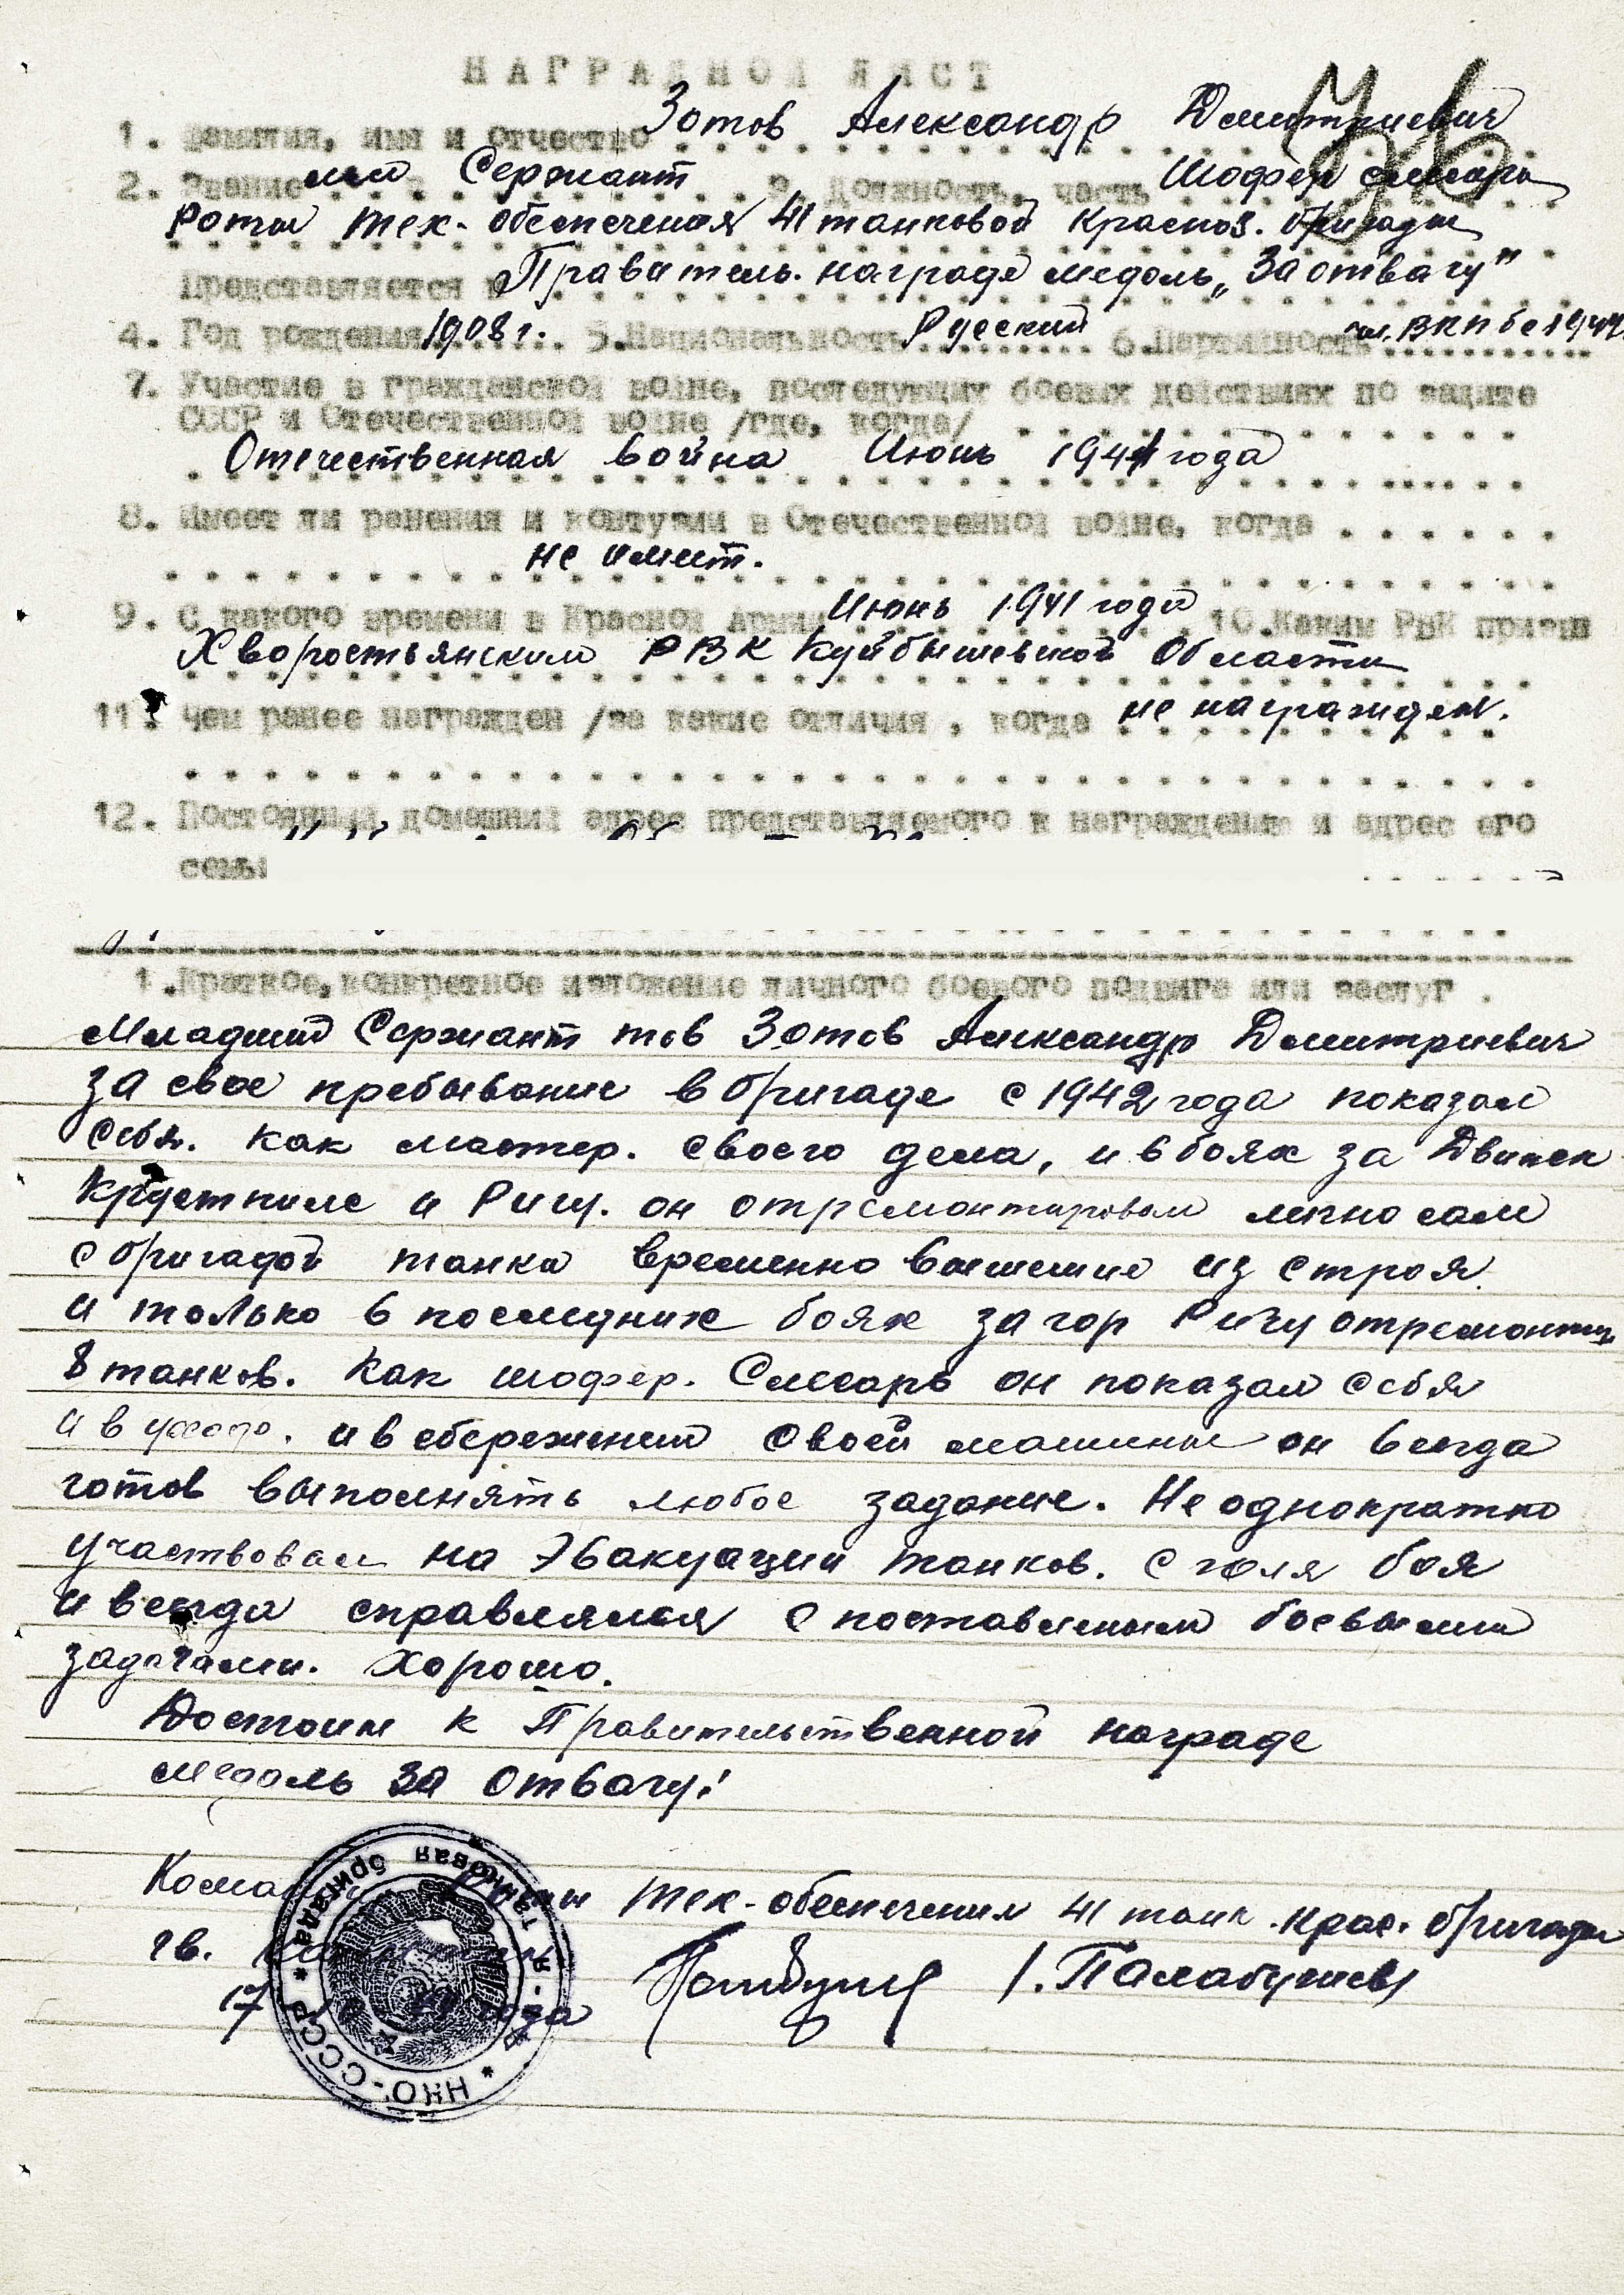 НАГРАДНОЙ ЛИСТ
1. Фамилия, имя и Отчество Зотов Александр Дмитриевич
2. Звание мл Сержант 3. Должность, часть Шофер слесарь
роты тех-обеспечения 41 танковой Красноз. бригады
Представляется к Правитель. награде медаль „За отвагу"
4. Год рождения 1908 г. 5. Национальность Русский 6. Партийность чл. ВКПб с 194
7. Участие в гражданской войне, последующих боевых действиях по защите
СССР и Отечественной войне /где, когда/
Отечественная война Июнь 1941 года
8. Имеет ли ранения и контузии в Отечественной войне, когда
не имеет.
9. С какого времени в Красной Армии Июнь 1941 года 10. Каким РВК призван
Хворостьянским РВК Куйбышевской Области
11. Чем ранее награжден /за какие отличия, когда не награжден.
12. Постоянный домашний адрес представляемого к награждению и адрес его
семьи
1. Краткое, конкретное изложение личного боевого подвига или заслуг.
Младший Сержант тов Зотов Александр Дмитриевич
за свое пребывание в бригаде с 1942 года показал
себя. как мастер. своего дела, и в боях за Двинск
Крустпилс и Ригу. он отремонтировал лично сам
с бригадой танка временно вышешие из строя
и только в последних боях за гор Ригу отремонтир
8 танков. Как шофер. Слесарь он показал себя
и в уходе. и в сбережений своей машины он всегда
готов выполнять любое задание. Не однократно
участвовал на Эвакуации танков. с поля боя
и всегда справлялся с поставленым боевыми
задачами. Хорошо.
Достоин к Правительственной награде
медаль За отвагу!
Роты тех-обеспечения 41 танк. крас. бригады
гв. /. Палабушев/
17 года
НКО-СССР * танковая бригада *